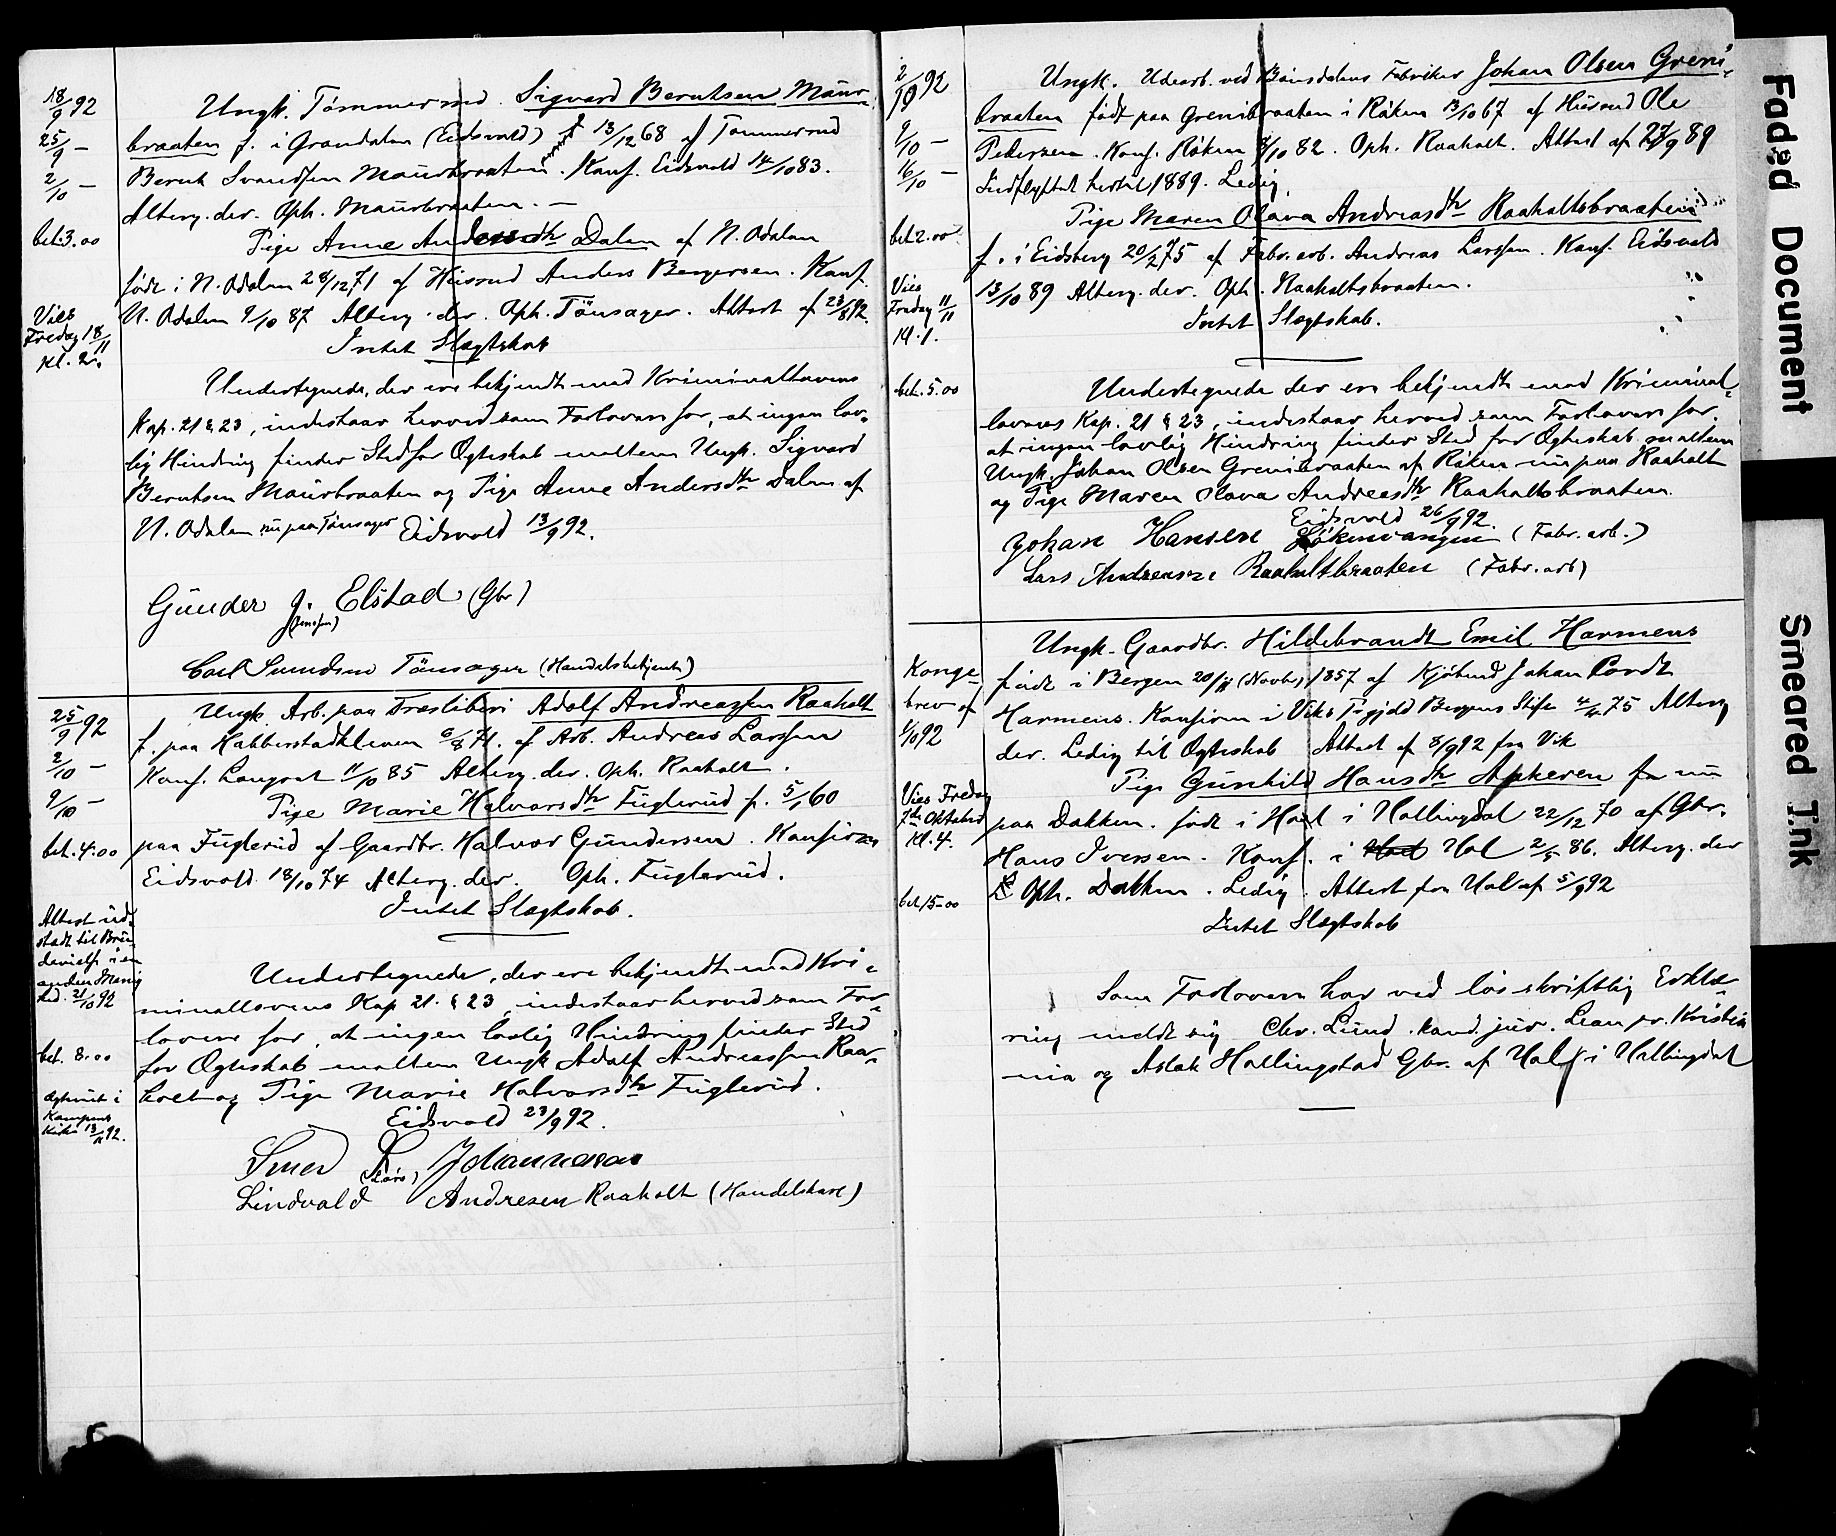 18/9 92
25/9 –
2/10 –
bet. 3.00
Vies
Fredag 18/11
Kl. 2.
Ungk. Tømmermd. Sigvard Berntsen Maur-
braaten f. i Grandalen (Eidsvold) 13/12 68 af Tømmermd
Bernt Svendsen Maurbraaten. Konf. Eidsvold 14/10 83.
Alterg. der. Oph. Maurbraaten. –
Pige Anne Andersdtr Dalen af N. Odalen
født i N. Odalen 28/12 71 af Husmd Anders Bergersen. Konf.
N. Odalen 9/10 87 Alterg. der. Oph. Tønsager. Attest af 23/8 92.
Intet Slægtskab
Undertegnede, der ere bekjendt med Kriminallovens
Kap. 21 § 23, indestaar herved som Forlovere for, at ingen lov-
lig Hindring finder Sted for Ægteskab mellem Ungk. Sigvard
Berntsen Maurbraaten og Pige Anne Andersdtr Dalen af
N. Odalen nu paa Tønsager Eidsvold 13/9 92.
Gunder J. Elstad (Gbr)
(Jensen)
Carl Svendsen Tønsager (Handelsbetjent)
25/9 92
2/10 –
9/10 –
bet. 4.00
Attest ud-
stedt til Bru-
devielse i en
anden Menig
hed. 21/10 92
bet. 8.00
Ægteviet i
Kampens
Kirke 13/11 92.
Ungk. Arb. paa Træsliberi Adolf Andreassen Raaholt
f. paa Habberstadkleven 6/8 71. af Arb. Andreas Larssen
Konf. Langset 11/10 85 Alterg. der. Oph. Raaholt.
Pige Marie Halvorsdtr Fuglerud f. 5/1 60
paa Fuglerud af Gaardbr. Halvor Gundersen. Konfirm
Eidsvold 18/10 74 Alterg. der. Oph. Fuglerud.
Intet Slægtskab.
Undertegnede, der ere bekjendt med Kri-
minallovens Kap 21. § 23, indestaar herved som For-
lovere for, at ingen lovlig Hindring finder Sted
for Ægteskab mellem Ungk Adolf Andreassen Raa-
holt og Pige Marie Halvorsdtr Fuglerud.
Eidsvold 23/9 92.
Smed L. Johannesen
(Lars)
Lindvald Andresen Raaholt (Handelskarl)
2/10 92
9/10 –
16/10 –
bet 2.00
Vies
Fredag 11/11
Kl. 1.
bet. 5.00
Ungk. Udearb. ved Bønsdalens Fabriker Johan Olsen Greni-
braaten født paa Grenibraaten i Røken 13/10 67 af Husmd Ole
Pedersen. Konf. Røken 8/10 82. Oph. Raaholt. Attest af 27/9 89
Indflyttet hertil 1889. Ledig.
Pige Maren Olava Andreasdtr Raaholtbraaten
f. i Eidsberg 20/2 75 af Fabr. arb. Andreas Larssen. Konf. Eidsvold
13/10 89 Alterg. der. Oph. Raaholtsbraaten.
Intet Slægtskab.
Undertegnede der ere bekjendt med Kriminal-
lovens Kap. 21 § 23, indestaar herved som Forlovere for,
at ingen lovlig Hindring finder Sted for Ægteskab mellem
Ungk. Johan Olsen Grenibraaten af Røken nu paa Raaholt
og Pige Maren Olava Andreasdtr Raaholtsbraaten.
Eidsvold 26/9 92.
Johan Hansen Løkenvangen (Fabr. arb.)
Lars Andreasen Raaholtbraaten (Fabr. arb)
Konge-
brev af
1/10 92
Vies Fredag
7de Oktober
Kl. 4.
bet. 15.00
Ungk. Gaardbr. Hildebrandt Emil Harmens
født i Bergen 20/11 (Novbr) 1857 af Kjøbmd Johan Cordt
Harmens. Konfirm i Viks Prgjeld Bergens Stift 4/4 75 Alterg
der. Ledig til Ægteskab Attest af 8/9 92 fra Vik
Pige Gunhild Hansdtr nu
paa Dokken. født i Hol i Hallingdal 22/12 70 af Gbr.
Hans Iversen. Konf. i Hol 2/5 86. Alterg. der
Oph. Dokken. Ledig. Attest fra Hol af 5/9 92
Intet Slægtskab
Som Forlovere har ved løs skriftlig Erklæ-
ring meldt sig Chr. Lund. kand. jur. Lian pr. Kristia
nia og Aslak Hallingstad Gbr. af Hol i Hallingdal
Faded Document
Smeared Ink